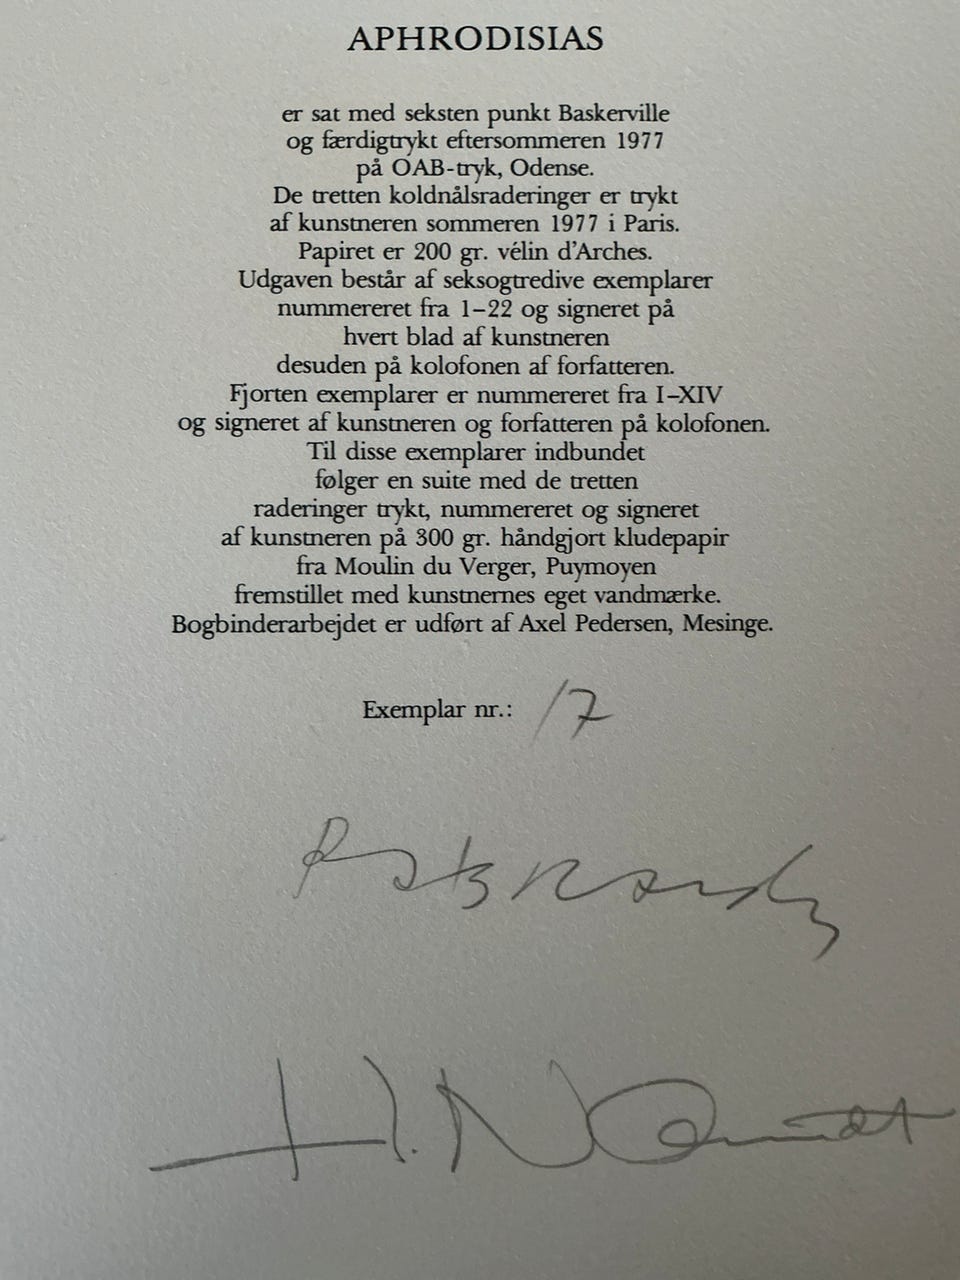 APHRODISIAS
er sat med seksten punkt Baskerville
og færdigtrykt eftersommeren 1977
på OAB-tryk, Odense.
De tretten koldnålsraderinger er trykt
af kunstneren sommeren 1977 i Paris.
Papiret er 200 gr. vélin d'Arches.
Udgaven består af seksogtredive exemplarer
nummereret fra 1–22 og signeret på
hvert blad af kunstneren
desuden på kolofonen af forfatteren.
Fjorten exemplarer er nummereret fra I–XIV
og signeret af kunstneren og forfatteren på kolofonen.
Til disse exemplarer indbundet
følger en suite med de tretten
raderinger trykt, nummereret og signeret
af kunstneren på 300 gr. håndgjort kludepapir
fra Moulin du Verger, Puymoyen
fremstillet med kunstnernes eget vandmærke.
Bogbinderarbejdet er udført af Axel Pedersen, Mesinge.
Exemplar nr.: 17